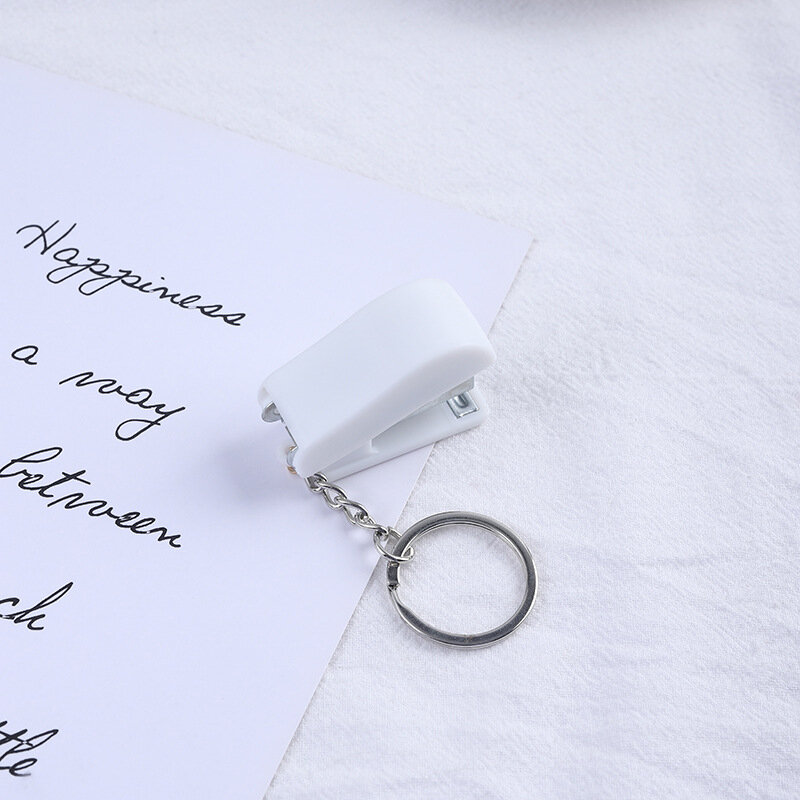 Happiness
a way
between
ch
tle